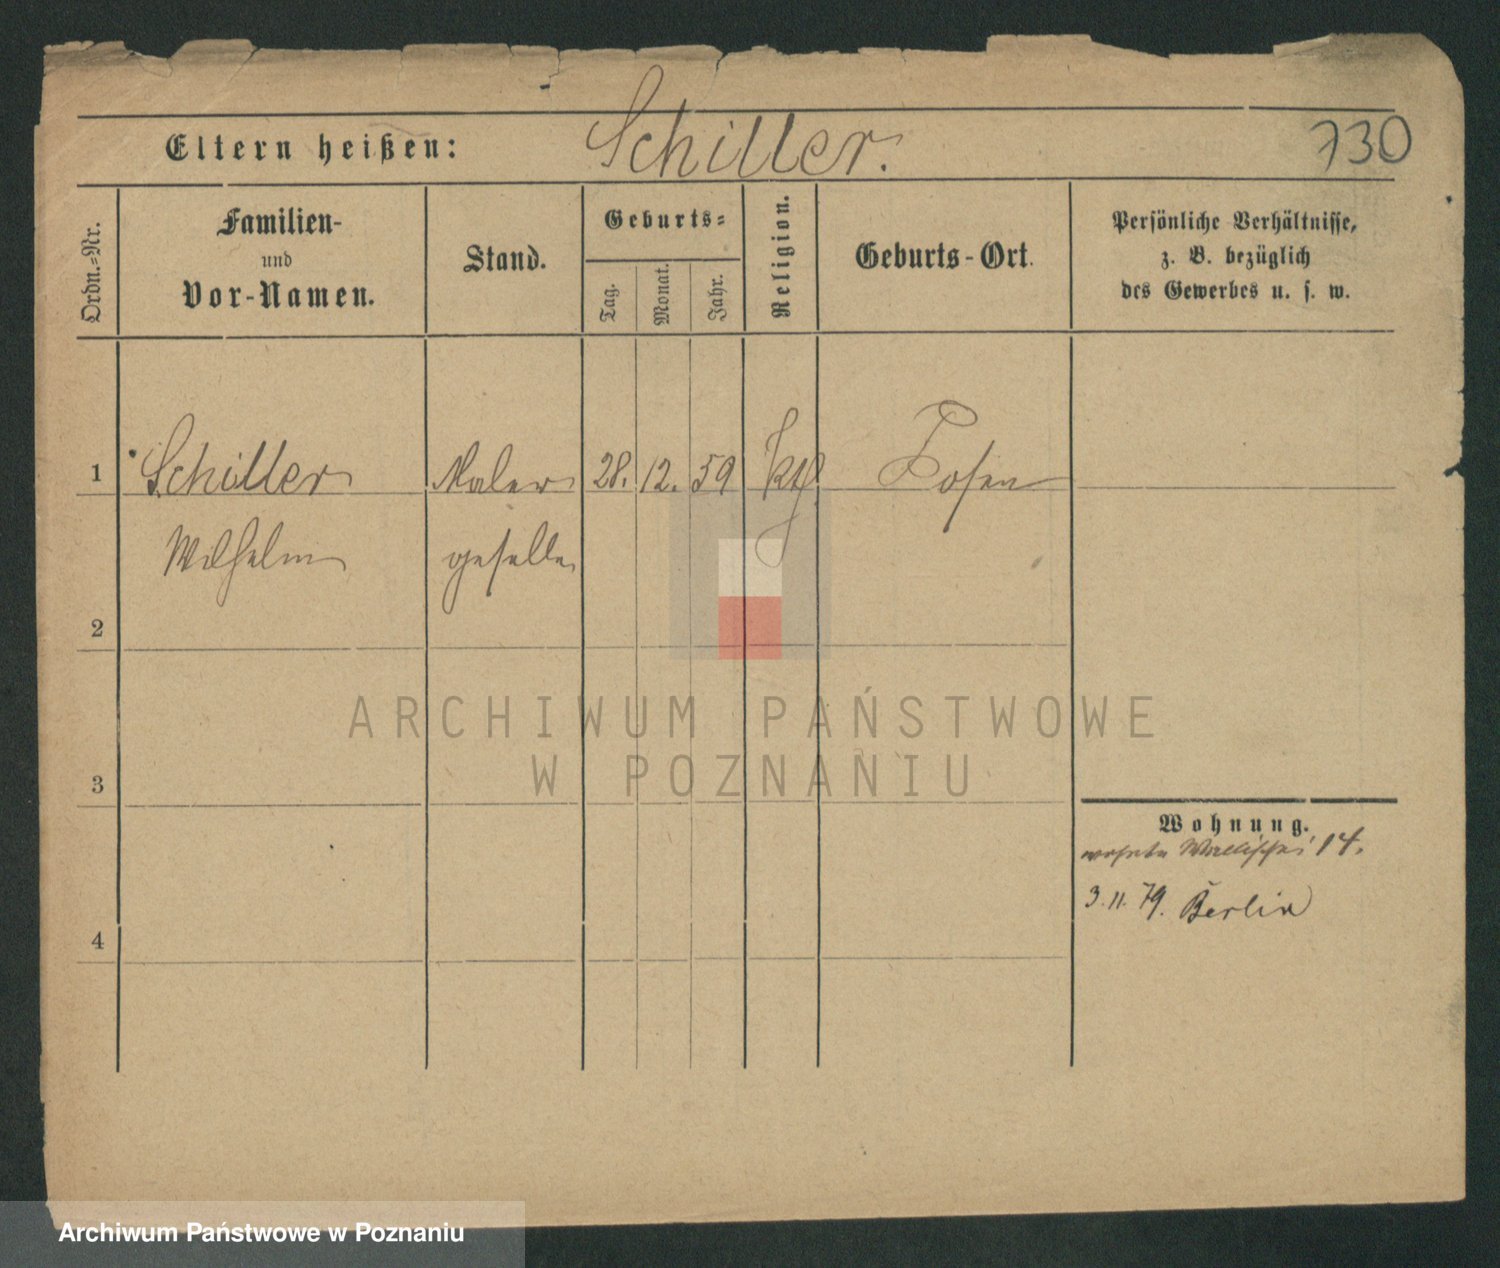 Eltern heißen: Schiller. 730
Ordn.-Nr.
Familien-
und
Vor-Namen.
Stand.
Geburts-
Tag.
Monat.
Jahr.
Religion.
Geburts-Ort.
Persönliche Verhältnisse,
z. B. bezüglich
des Gewerbes u. s. w.
1 Schiller Maler 28. 12. 59 kth. Posen
Wilhelm geselle
2
3
4
Wohnung.
wohnte Wallischei 14.
3.11.79. Berlin
ARCHIWUM PAŃSTWOWE
W POZNANIU
Archiwum Państwowe w Poznaniu